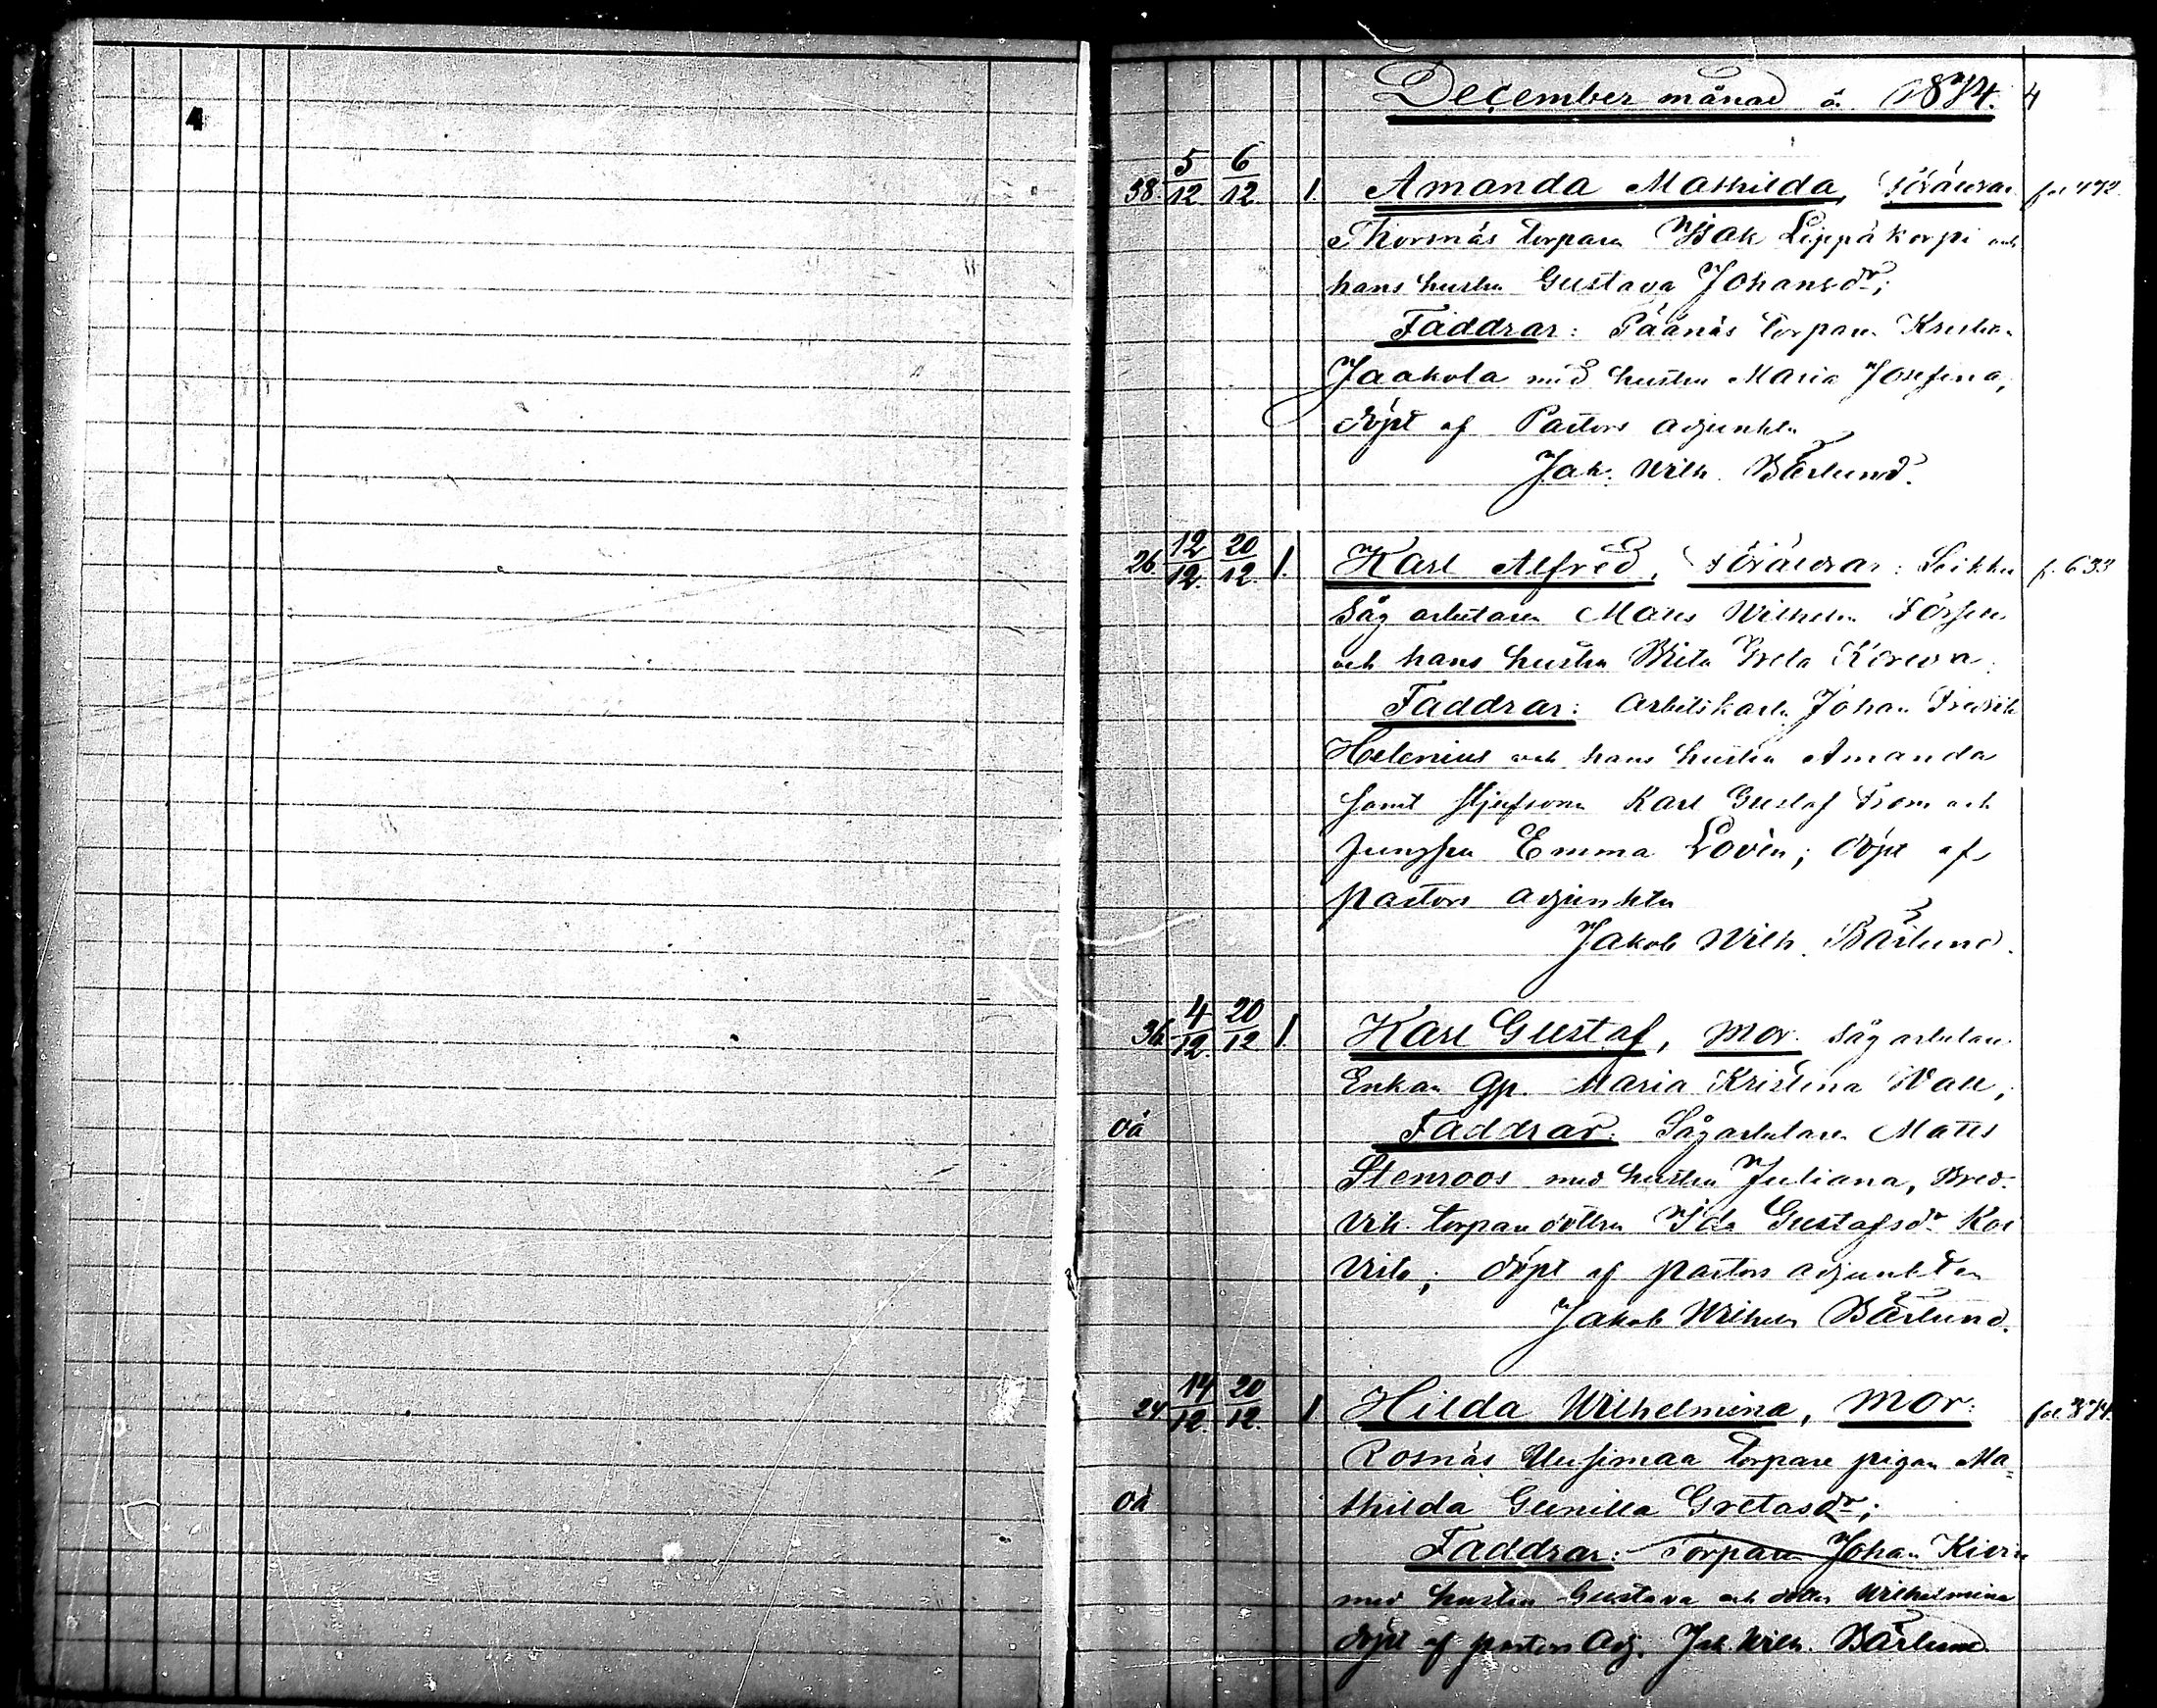 4
December månad å. 1874. 4
38. 5/12 6/12 1. Amanda Mathilda, föräldrar fol 472.
Thornäs torparen Isak Leppäkorpi och
hans hustru Gustava Johansdr;
Faddrar: Päänäs torparen Kristian
Jaakola med hustru Maria Josefina,
döpt af Pastors adjunkten
Jak. Wilh. Bärlund.
26 12/12. 20/12. 1. Karl Alfred, föräldrar: Seikku f. 633
Såg arbetaren Matts Wilhelm
och hans hustru Brita Greta
Faddrar: Arbetskarln Johan Fredrik
Helenius och hans hustru Amanda
samt Karl Gustaf From och
Jungfru Emma Lovén; döpt af
pastors adjunkten
Jakob Wilh. Bärlund.
36. 4/12. 20/12 1. Karl Gustaf, mor. Såg arbetare
Enkan Gp. Maria Kristina Wall;
oä Faddrar: Sågarbetaren Matts
Stenroos med hustru Juliana, Bred-
vik torpare dottren Ida Gustafsdr Koi
visto; döpt af pastors adjunkten
Jakob Wilhelm Bärlund.
24 14/12. 20/12. 1 Hilda Wilhelmina, mor: fol. 374.
Rosnäs Uusimaa torpare pigan Ma=
oä thilda Gunilla Gretasdr;
Faddrar: Torparen Johan
med hustru Gustava och dotter Wilhelmina
döpt af pastors Adj. Jak. Wilh. Bärlund